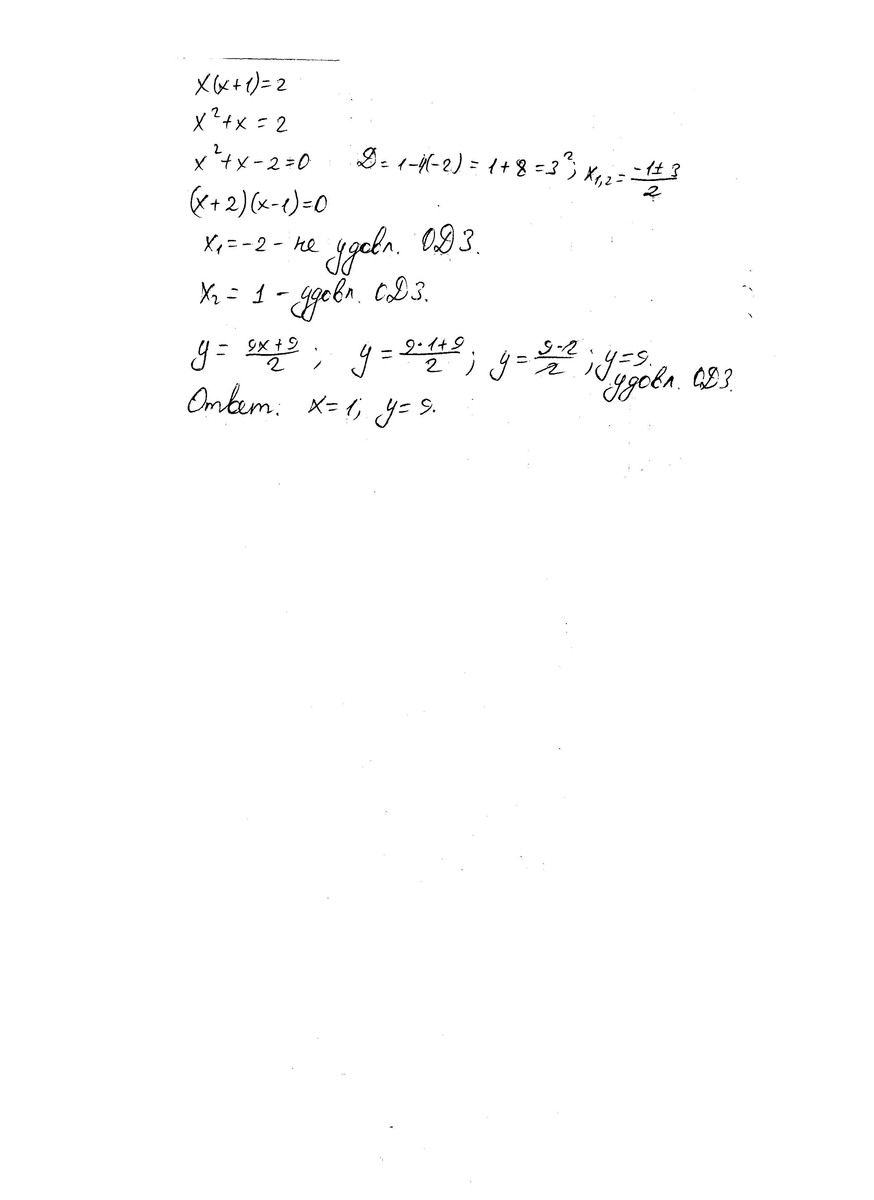 x(x+1)=2
x²+x=2
x²+x-2=0 D=1-4(-2)=1+8=3²; x₁,₂=(-1±3)/2
(x+2)(x-1)=0
x₁=-2 - не удовл. ОДЗ.
x₂=1 - удовл. ОДЗ.
y=(9x+9)/2; y=(9·1+9)/2; y=(9·2)/2; y=9.
удовл. ОДЗ.
Ответ: x=1; y=9.